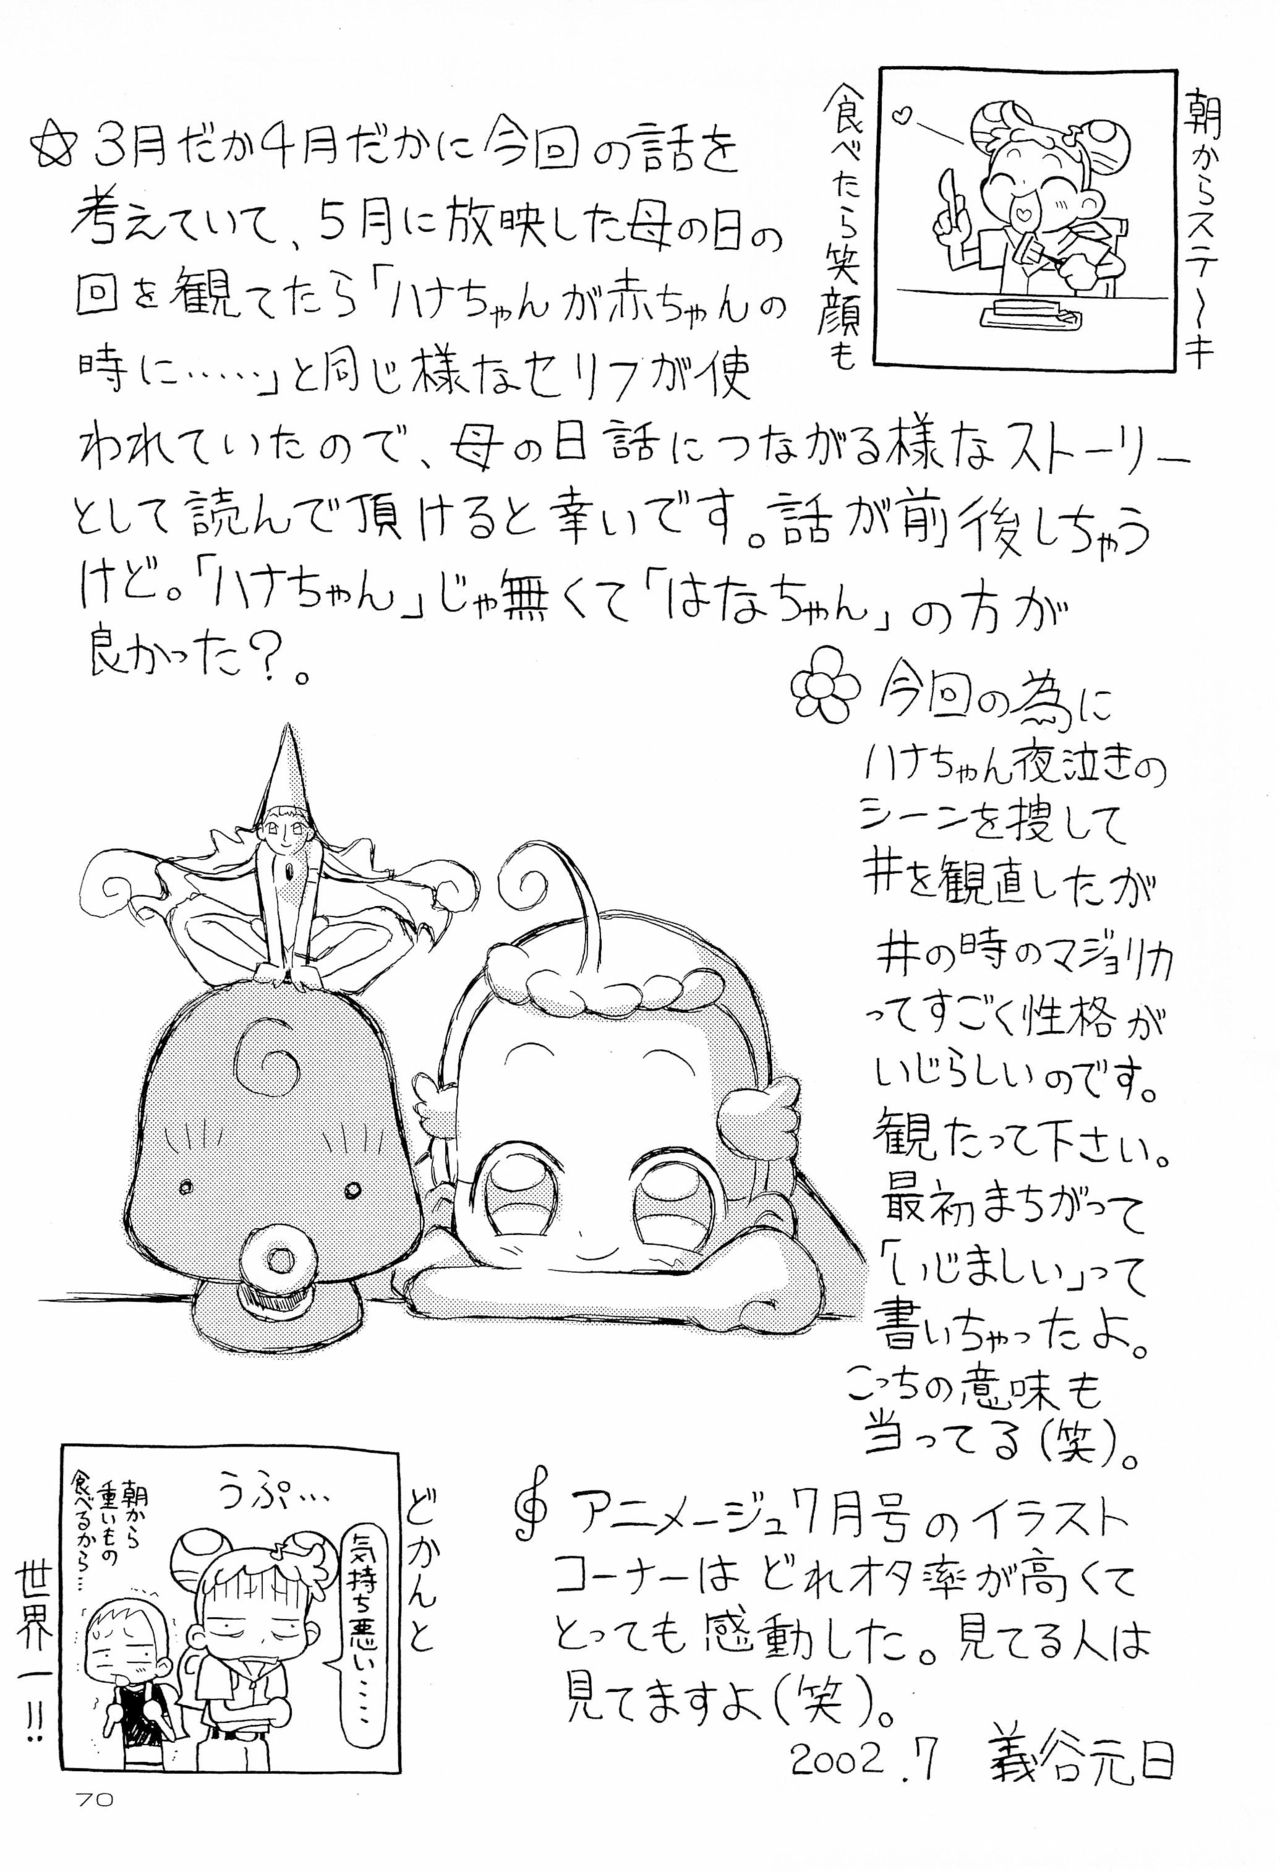 朝からステ〜キ
食べたら笑顔も
☆3月だか4月だかに今回の話を
考えていて、5月に放映した母の日の
回を観てたら「ハナちゃんが赤ちゃんの
時に……」と同じ様なセリフが使
われていたので、母の日話につながる様なストーリー
として読んで頂けると幸いです。話が前後しちゃう
けど。「ハナちゃん」じゃ無くて「はなちゃん」の方が
良かった?。
今回の為に
ハナちゃん夜泣きの
シーンを捜して
#を観直したが
#の時のマジョリカ
ってすごく性格が
いじらしいのです。
観たって下さい。
最初まちがって
「いじましい」って
書いちゃったよ。
こっちの意味も
当ってる(笑)。
どかんと
世界一!!
うぷ…
気持ち悪い……
朝から
重いもの
食べるから…
アニメージュ7月号のイラスト
コーナーはどれオタ率が高くて
とっても感動した。見てる人は
見てますよ(笑)。
2002.7 義谷元日
70